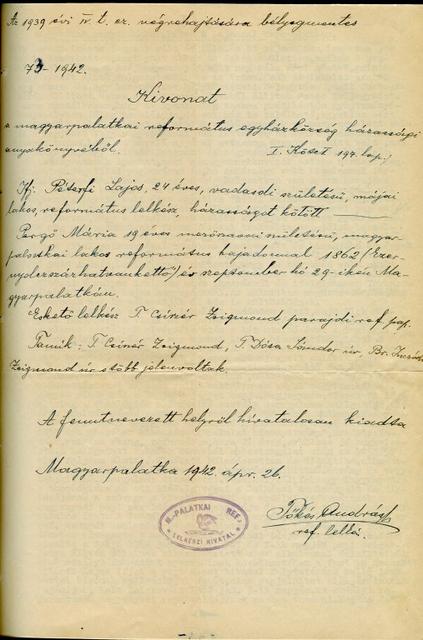 Az 1939 évi IV. t. cz. végrehajtására bélyegmentes
73 - 1942.
Kivonat
a magyarpalatkai református egyházközség házassági
anyakönyvéből. I. Kötet 197. lap.
Ifj. Péterfi Lajos, 24 éves, vadasdi születésü,
lakos, református lelkész, házasságot kötött
Mária 19 éves születésü, magyar-
palatkai lakos református hajadonnal 1862 /Ezer-
nyolcszázhatvankettő/ év szeptember hó 29-ikén Ma-
gyarpalatkán.
Esketö lelkész T. Zsigmond parajdi ref. pap.
Tanúk: T. Zsigmond, T. Dósa Sándor úr, Br.
Zsigmond úr stöbb jelenvoltak.
A fenntnevezett helyről hivatalosan kiadta
Magyarpalatka 1942. ápr. 26.
M.-PALATKAI REF.
LELKÉSZI HIVATAL
Tőkés András
ref. lelkész.